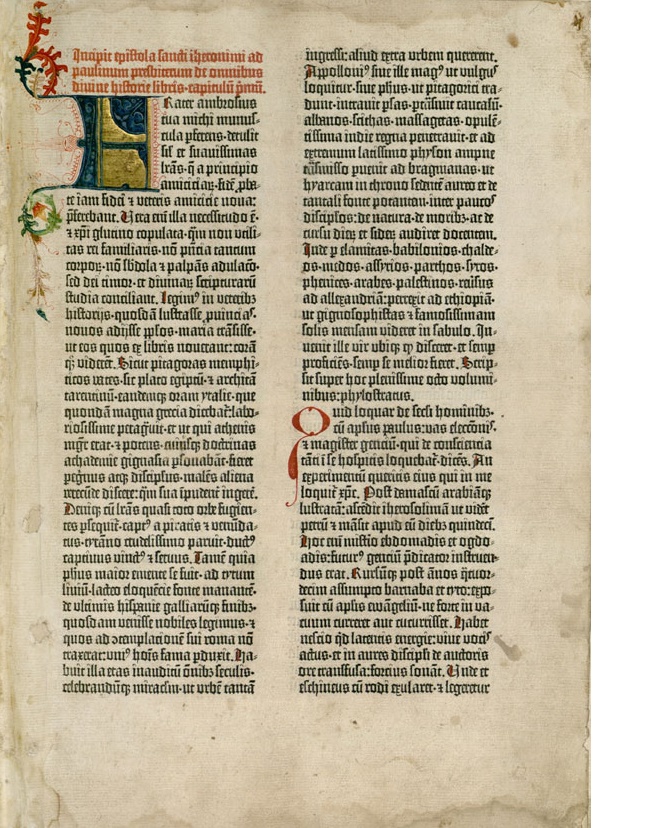 Incipit epistola sancti iheronimi ad
paulinum presbiterum de omnibus
divine historie libris·capitulū p̄mū.
Frater ambrosius
tua michi munus-
cula pferens·detulit
sil' et suavissimas
lrās·q̄ a principio
amiciciaꝝ·fidē ꝓba-
te iam fidei ⁊ veteris amicicie nova:
pferebant. Vera em̄ illa necessitudo ē·
⁊ xp̄i glutino copulata·q̄m non utili-
tas rei familiaris·nō pn̄tia tantum
corpoꝝ·nō sb̄dola ⁊ palpās adulacō·
sed dei timor·et divinaꝝ scripturarū
studia conciliant. Legim⁹ in veterib⁊
historijs·quosdā lustrasse ꝓuīcias·
novos adijsse pplos·maria trāsisse·
ut eos quos ex libris noverant: corā
q̄⁊ viderēt. Sicut pitagoras memphi-
ticos vates·sic plato egiptū·⁊ architā
tarentinū·eandemq⁊ oram ytalie·que
quondā magna grecia dicebat̄: labo-
riosissime peragūit·et ut qui athenis
mgr̄ erat·⁊ potens·cuiusq⁊ doctrinas
achademie gignasia psonabāt·fieret
pegrinus atq⁊ discipulus·malēs aliena
verecūde discere: q̄m sua īpudent̄ ingere.
Deniq⁊ cū lrās quasi toto orbe fugien-
tes psequit̄·capt⁹ a piratis ⁊ venūda-
tus·tyrāno crudelissimo paruit·duct⁹
captivus vinct⁹ ⁊ servus. Tamē quia
phus maior emente se fuit·ad tytum
liviū·lacteo eloquēcie fonte manantē·
de ultimis hispanie galliarūq⁊ finib⁊·
quosdam venisse nobiles legimus·⁊
quos ad ꝯtemplationē sui roma nō
traxerat: uni⁹ hoīs fama pduxit. Ha-
buit illa etas inauditū om̄ib⁊ seculis·
celebrandūq⁊ miraclm·ut urbē tantā
ingressi: aliud extra urbem quererent.
Appolloni⁹ sive ille mag⁹ ut vulgus
loquitur·sive phus·ut pitagorici tra-
dunt·intravit psas·ptrāsivit caucasū·
albanos·scithas·massagetas·opulē-
tissima indie regna penetravit·et ad
extremum latissimo physon ampne
trāsmisso puenit ad bragmanas·ut
hyarcam in throno sedentē aureo et de
tantali fonte potantem·inter paucos
disciplos·de natura·de morib⁊·ac de
cursu dieꝝ et sideꝝ audiret docentem.
Inde p elamitas·babilonios·chalde-
os·medos·assyrios·parthos·syros·
phenices·arabes·palestinos·revsus
ad allexandriā: perrexit ad ethiopiā·
ut gignosophistas ⁊ famosissimam
solis mensam videret in sabulo. In-
venit ille vir ubiq⁊ q̄ disceret·et semp
proficiēs·semp se melior fieret. Scrip-
sit super hoc plenissime octo volumi-
nibus: phylostratus.
Quid loquar de secli hominib⁊·
cū apl̄us paulus: vas electōnis·
⁊ magister genciū·qui de consciencia
tāti ī se hospitis loquebat̄·dicēs. An
experimentū queritis eius qui in me
loquit̄ xp̄c. Post damascū arabiāq⁊
lustratā: ascēdit iherosolimā ut vidēt
petrū ⁊ māsit apud eū dieb⁊ quindecī.
Hoc em̄ misterio ebdomadis et ogdo-
adis: futur⁹ genciū p̄dicator instruen-
dus erat. Rursūq⁊ post ānos q̄tuor-
decim assumpto barnaba et tyto: expo-
suit cū apl̄is ewāgeliū·ne forte in va-
cuum curreret aut cucurrisset. Habet
nescio q̄d latentis energie: vive vocis
actus·et in aures discipli de auctoris
ore transfusa: forcius sonāt. Unde et
eschineus cū rodi exularet·⁊ legeretur